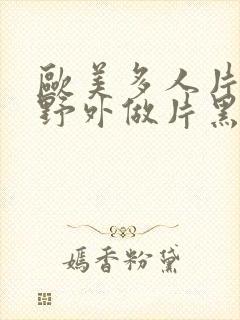 歐美多人片
野外做片黑
嫣香粉黛